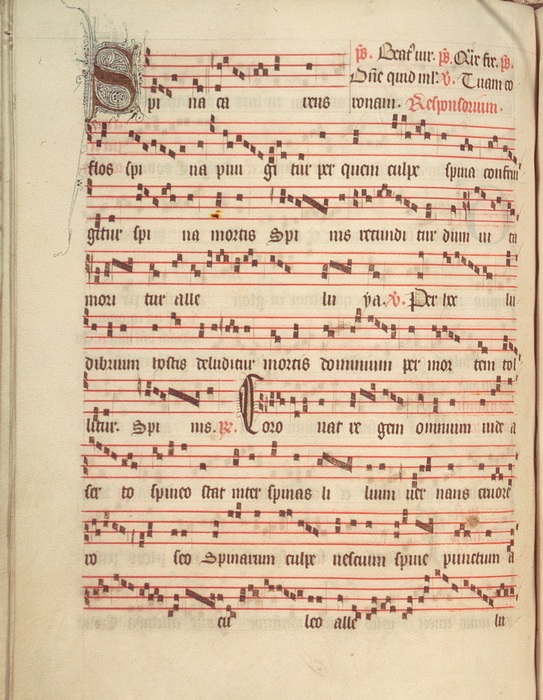 ps. Beat' uir. ps. Qūr fre. ps.
Dñe quid ml'. v. Tuam co
Spi na ca rens ronam. Responsorium.
flos spi na pun gi tur per quem culpe spina confrin
gitur spi na mortis Spi nis retundi tur dum in
mori tur alle lu ya. v. Per hec lu
dibrium hostis deluditur mortis dominium per mor tem tol
litur. Spi nis. R. Coro nat re gem omnium unde a
ser to spineo stat inter spinas li lium ver nans cruore
ro seo Spinarum culpe nescium spine punctum a
cu leo alle lu